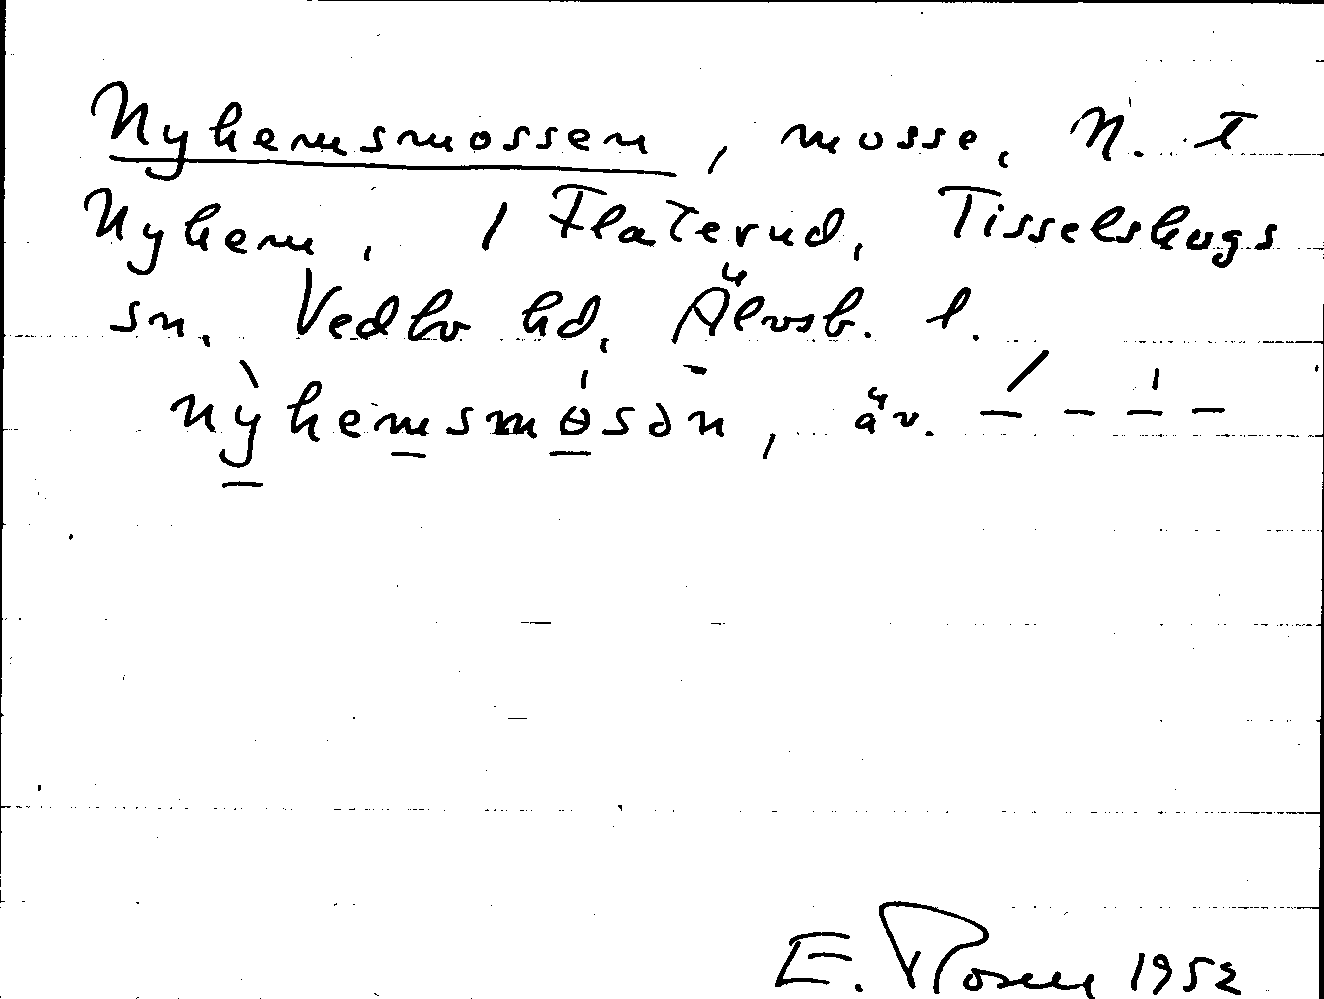 Nyhemsmossen, mosse, N. t
Nyhem, 1 Flaterud, Tisselskogs
sn. Vedbo hd, Älvsb. l.
nỳhemsmɵ́sən, äv. — – — –
E. Rosell 1952